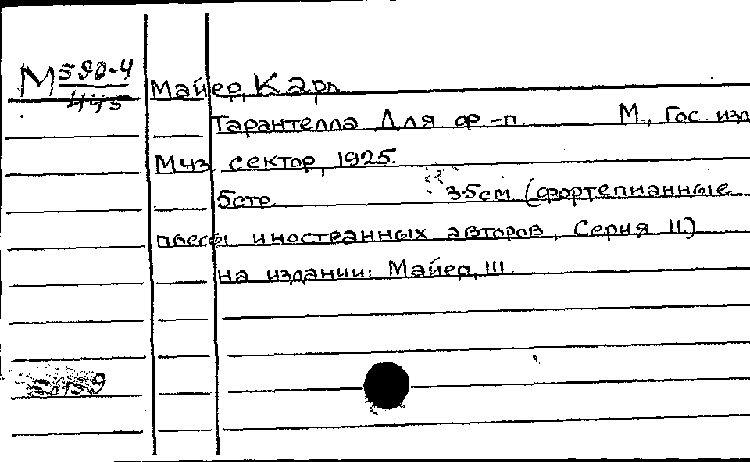 М 590-4
445
Майер, Карл
Тарантелла Для ф-п. М., Гос изд
Муз сектор, 1925.
5стр. 35см (Фортепианные
пьесы иностранных авторов, Серия II.)
на издании: Майер, Ш.